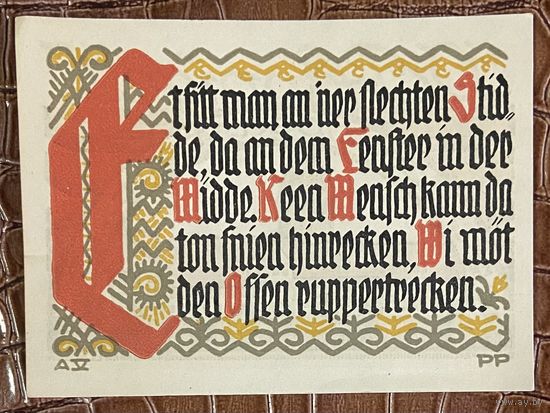 Et sitt man an ner slechten Stid-
de, da an dem Fenster in der
Midde. Keen Mensch kann da
ton snien hinrecken, Wi möt
den Ossen ruppertrecken.
AV PP
www.ay.by